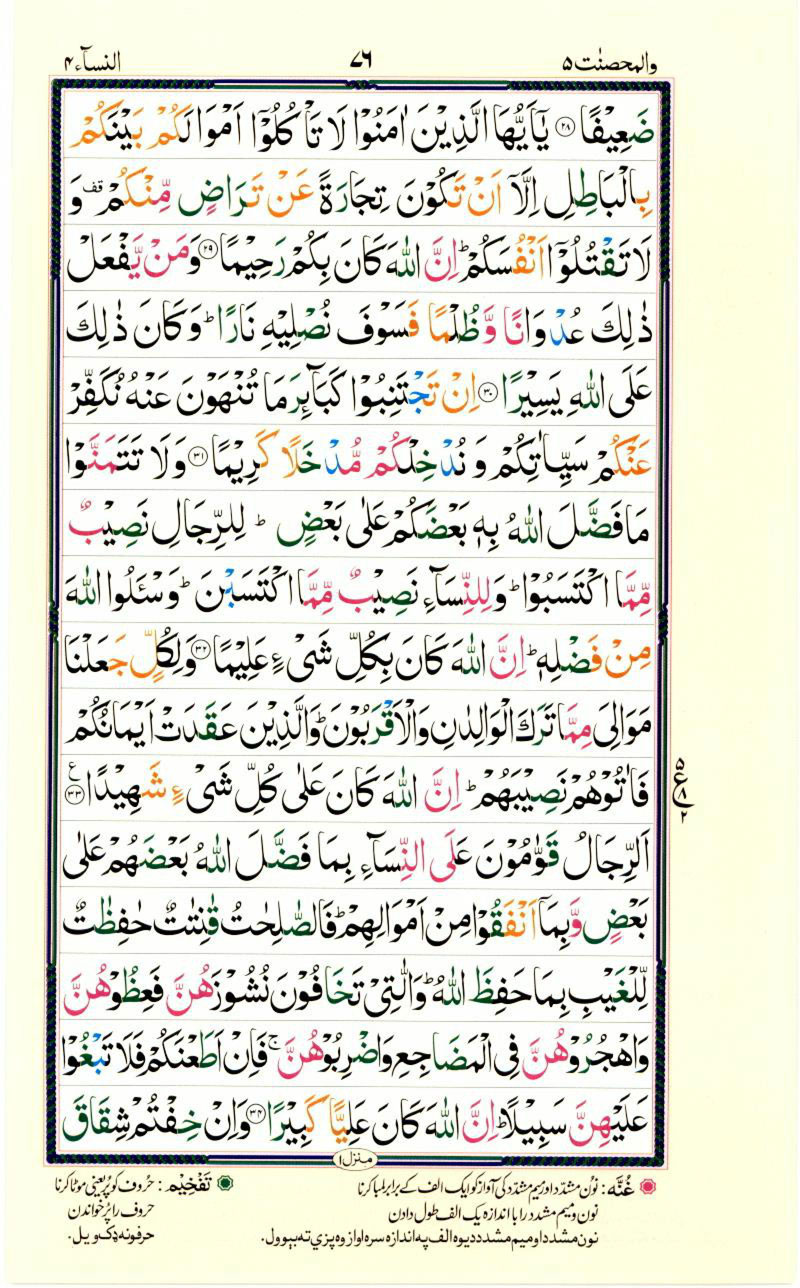 والمحصنٰت ۵ ۷۶ النسآء ۴
ضَعِيْفًا ﴿۲۸﴾ يٰۤاَيُّهَا الَّذِيْنَ اٰمَنُوْا لَا تَاْكُلُوْۤا اَمْوَالَكُمْ بَيْنَكُمْ
بِالْبَاطِلِ اِلَّاۤ اَنْ تَكُوْنَ تِجَارَةً عَنْ تَرَاضٍ مِّنْكُمْ ۟قف وَ
لَا تَقْتُلُوْۤا اَنْفُسَكُمْ ؕ اِنَّ اللّٰهَ كَانَ بِكُمْ رَحِيْمًا ﴿۲۹﴾ وَمَنْ يَّفْعَلْ
ذٰلِكَ عُدْوَانًا وَّظُلْمًا فَسَوْفَ نُصْلِيْهِ نَارًا ؕ وَكَانَ ذٰلِكَ
عَلَى اللّٰهِ يَسِيْرًا ﴿۳۰﴾ اِنْ تَجْتَنِبُوْا كَبَآئِرَ مَا تُنْهَوْنَ عَنْهُ نُكَفِّرْ
عَنْكُمْ سَيِّاٰتِكُمْ وَ نُدْخِلْكُمْ مُّدْخَلًا كَرِيْمًا ﴿۳۱﴾ وَلَا تَتَمَنَّوْا
مَا فَضَّلَ اللّٰهُ بِهٖ بَعْضَكُمْ عَلٰى بَعْضٍ ؕ لِلرِّجَالِ نَصِيْبٌ
مِّمَّا اكْتَسَبُوْا ؕ وَلِلنِّسَآءِ نَصِيْبٌ مِّمَّا اكْتَسَبْنَ ؕ وَسْئَلُوا اللّٰهَ
مِنْ فَضْلِهٖ ؕ اِنَّ اللّٰهَ كَانَ بِكُلِّ شَیْءٍ عَلِيْمًا ﴿۳۲﴾ وَلِكُلٍّ جَعَلْنَا
مَوَالِیَ مِمَّا تَرَكَ الْوَالِدٰنِ وَالْاَقْرَبُوْنَ ؕ وَالَّذِيْنَ عَقَدَتْ اَيْمَانُكُمْ
فَاٰتُوْهُمْ نَصِيْبَهُمْ ؕ اِنَّ اللّٰهَ كَانَ عَلٰى كُلِّ شَیْءٍ شَهِيْدًا ﴿۳۳﴾ ع
۵ ع ۸ ۲
اَلرِّجَالُ قَوّٰمُوْنَ عَلَى النِّسَآءِ بِمَا فَضَّلَ اللّٰهُ بَعْضَهُمْ عَلٰى
بَعْضٍ وَّبِمَاۤ اَنْفَقُوْا مِنْ اَمْوَالِهِمْ ؕ فَالصّٰلِحٰتُ قٰنِتٰتٌ حٰفِظٰتٌ
لِّلْغَيْبِ بِمَا حَفِظَ اللّٰهُ ؕ وَالّٰتِیْ تَخَافُوْنَ نُشُوْزَهُنَّ فَعِظُوْهُنَّ
وَاهْجُرُوْهُنَّ فِی الْمَضَاجِعِ وَاضْرِبُوْهُنَّ ۚ فَاِنْ اَطَعْنَكُمْ فَلَا تَبْغُوْا
عَلَيْهِنَّ سَبِيْلًا ؕ اِنَّ اللّٰهَ كَانَ عَلِيًّا كَبِيْرًا ﴿۳۴﴾ وَاِنْ خِفْتُمْ شِقَاقَ
منزل ۱
غُنَّه: نُون مشدّد اور میم مشدّد کی آواز کو ایک الف کے برابر لمبا کرنا تَفْخِيْم: حُروف کو پُر یعنی موٹا کرنا
نون و میم مشدد را با اندازہ یک الف طول دادن حروف را پُر خواندن
نون مشدد او میم مشدد دیوه الف په اندازه سره اواز وه پزې ته بېوول. حرفونه ډک ویل.